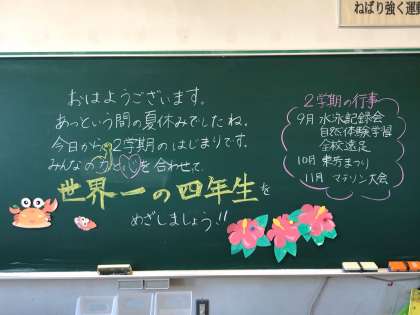 ねばり強く運動
おはようございます。
あっという間の夏休みでしたね。
今日から2学期のはじまりです。
みんなの力と心を合わせて
世界一の四年生を
めざしましょう!!
2学期の行事
9月 水泳記録会
自然体験学習
全校遠足
10月 東芳まつり
11月 マラソン大会